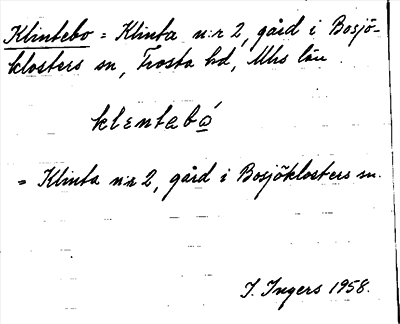 Klintebo = Klinta n:r 2, gård i Bosjö-
klosters sn, Frosta hd, Mhs län.
klentabó
= Klinta n:r 2, gård i Bosjöklosters sn.
I. Ingers 1958.